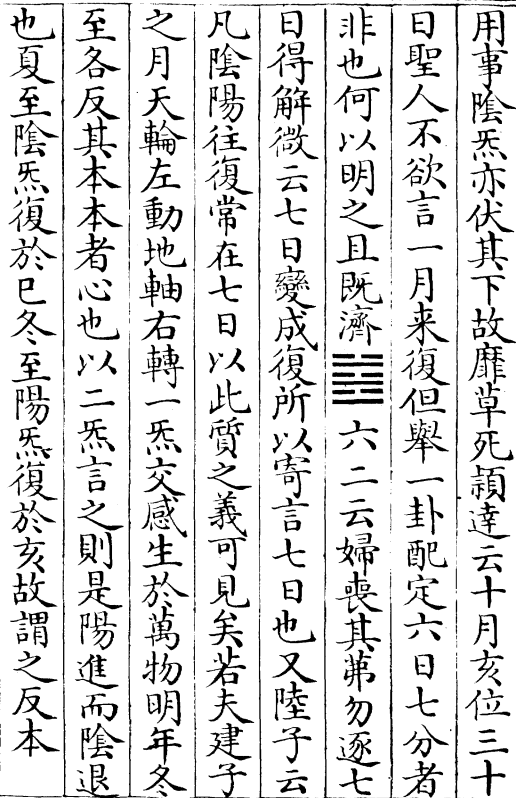 用事陰炁亦伏其下故靡草死穎達云十月亥位三十
日聖人不欲言一月来復但舉一卦配定六日七分者
非也何以明之且既濟䷾六二云婦喪其茀勿逐七
日得解微云七日變成復所以寄言七日也又陸子云
凡陰陽往復常在七日以此質之義可見矣若夫建子
之月天輪左動地軸右轉一炁交感生於萬物明年冬
至各反其本本者心也以二炁言之則是陽進而陰退
也夏至陰炁復於巳冬至陽炁復於亥故謂之反本